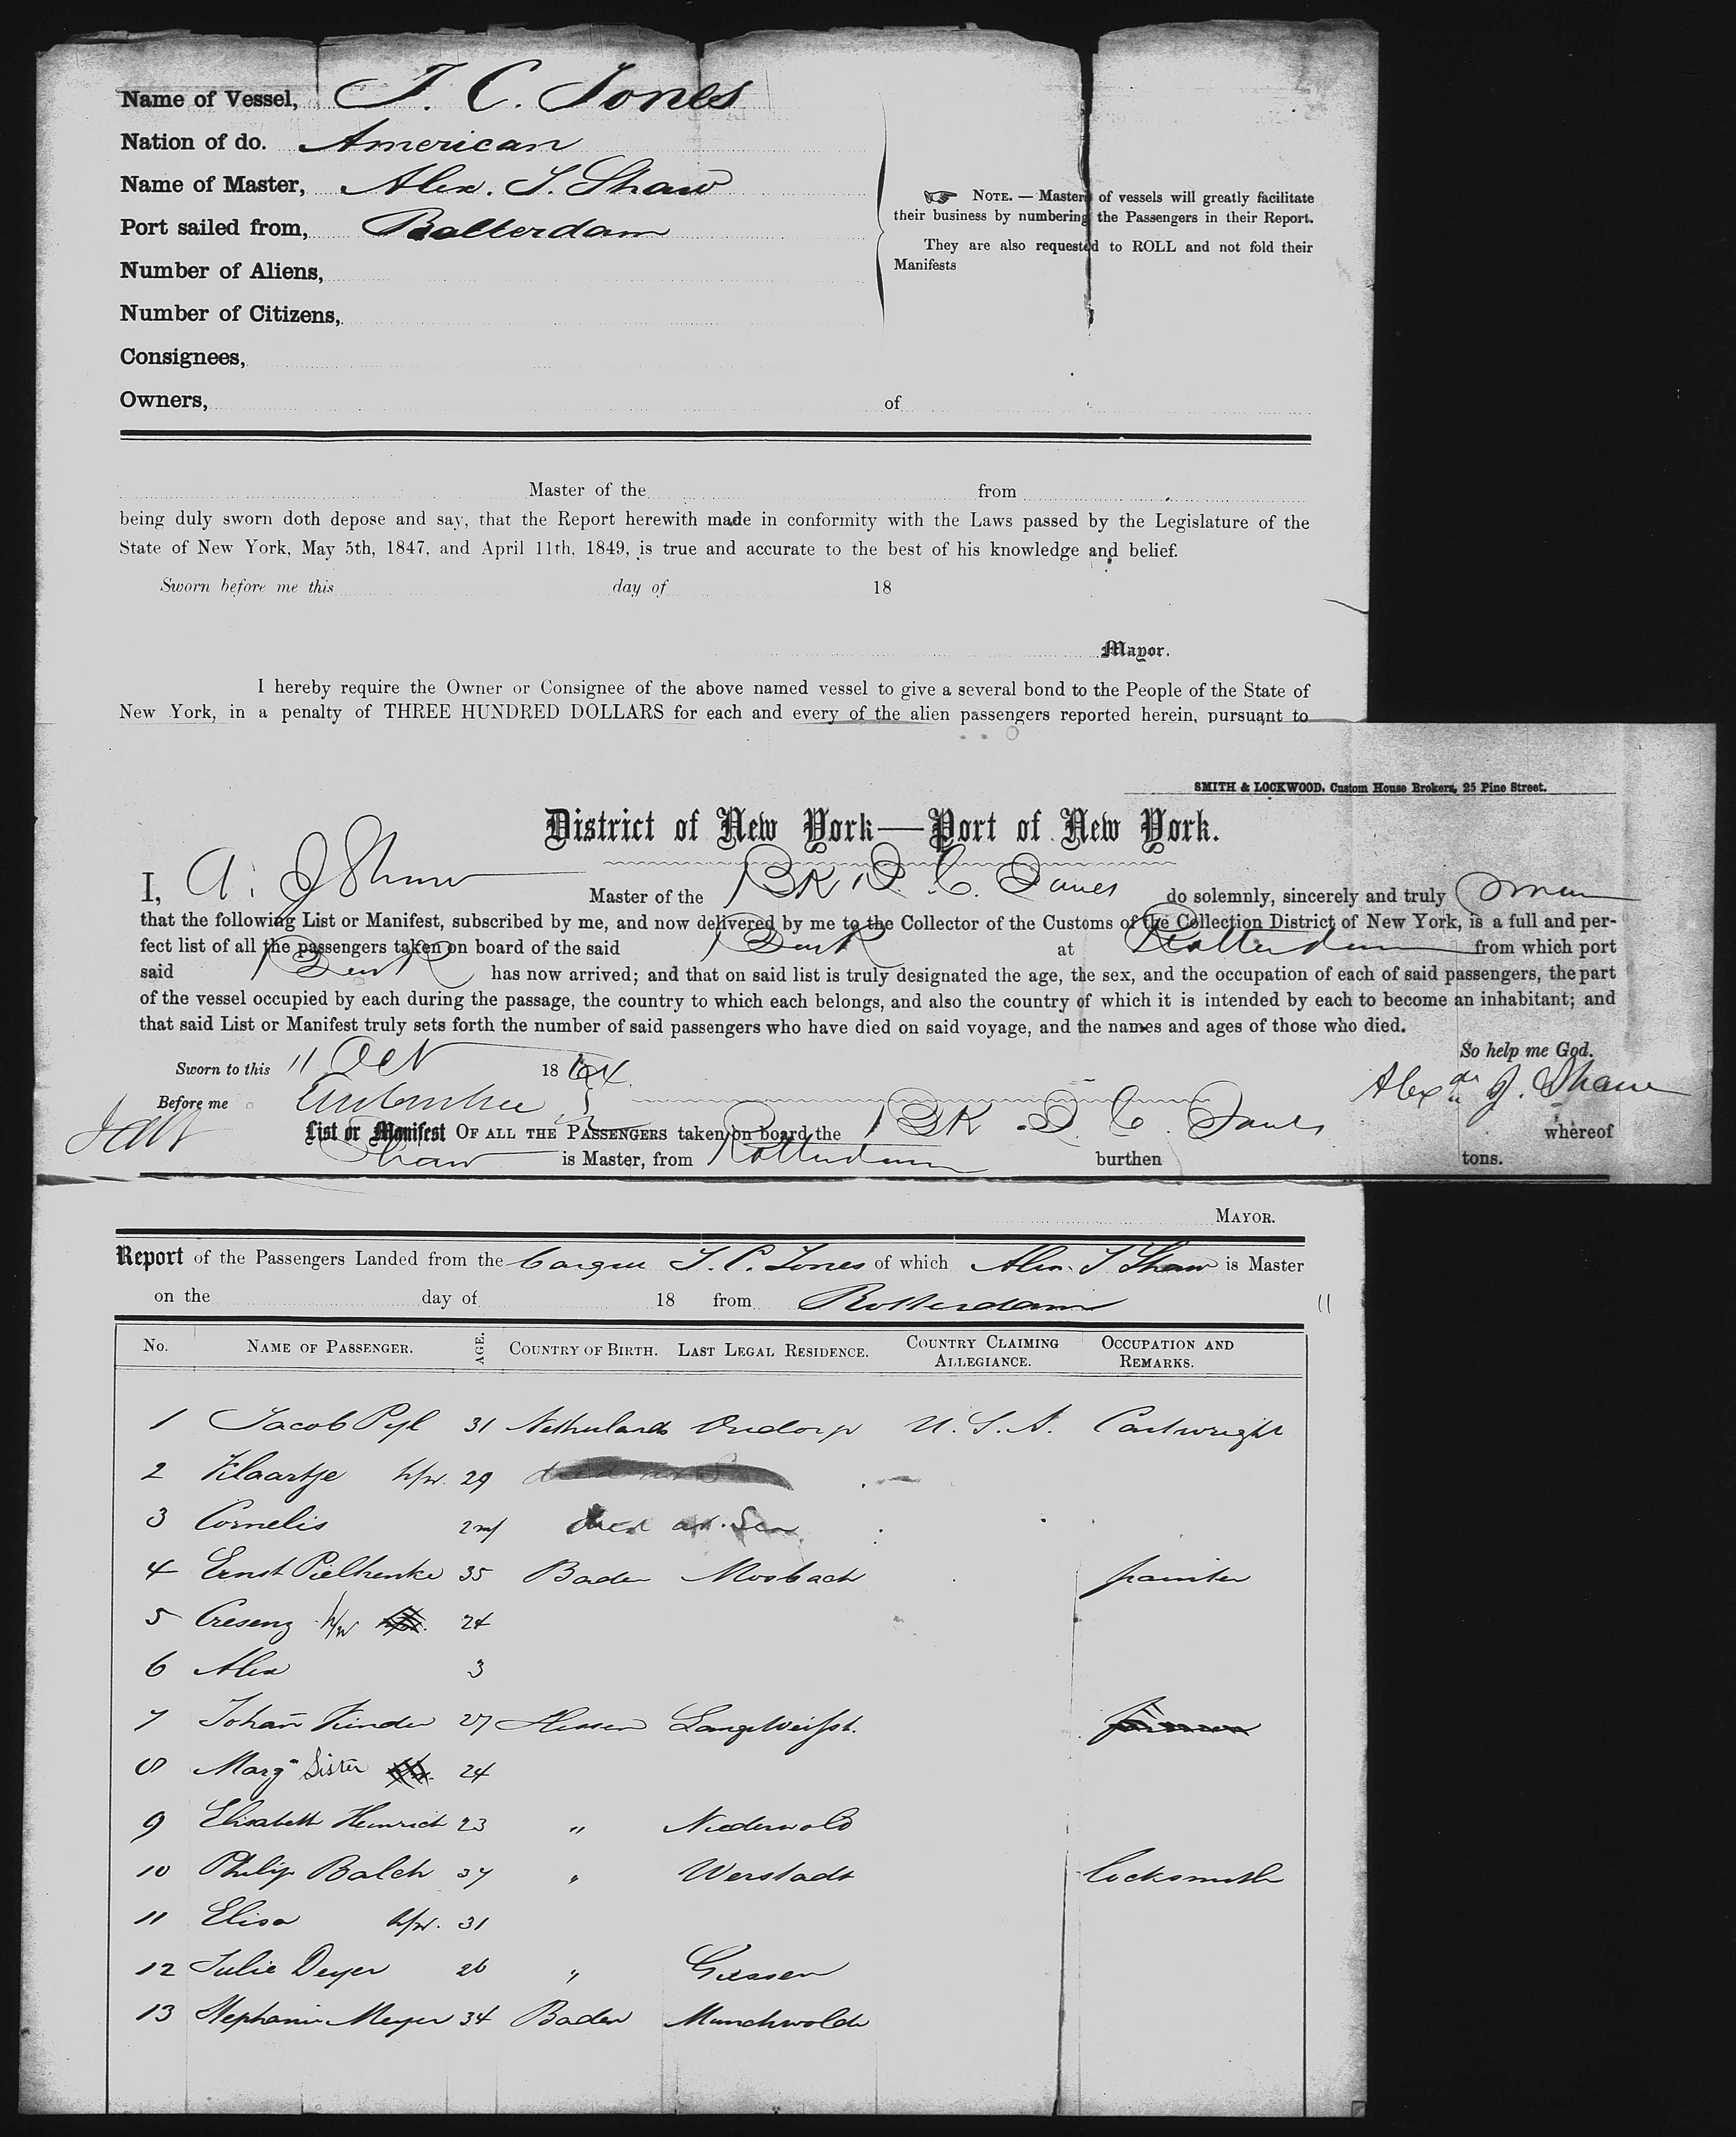 Name of Vessel, J. C. Jones
Nation of do. American
Name of Master, Alex. J. Shaw
Port sailed from, Rotterdam
Number of Aliens,
Number of Citizens,
Consignees,
Owners, of
NOTE. — Masters of vessels will greatly facilitate
their business by numbering the Passengers in their Report.
They are also requested to ROLL and not fold their
Manifests
Master of the from
being duly sworn doth depose and say, that the Report herewith made in conformity with the Laws passed by the Legislature of the
State of New York, May 5th, 1847, and April 11th, 1849, is true and accurate to the best of his knowledge and belief.
Sworn before me this day of 18
Mayor.
I hereby require the Owner or Consignee of the above named vessel to give a several bond to the People of the State of
New York, in a penalty of THREE HUNDRED DOLLARS for each and every of the alien passengers reported herein, pursuant to
SMITH & LOCKWOOD, Custom House Brokers, 25 Pine Street.
District of New York—Port of New York.
I, A. J Shaw Master of the BK J. C. Jones do solemnly, sincerely and truly swear
that the following List or Manifest, subscribed by me, and now delivered by me to the Collector of the Customs of the Collection District of New York, is a full and per-
fect list of all the passengers taken on board of the said Bark at Rotterdam from which port
said Bark has now arrived; and that on said list is truly designated the age, the sex, and the occupation of each of said passengers, the part
of the vessel occupied by each during the passage, the country to which each belongs, and also the country of which it is intended by each to become an inhabitant; and
that said List or Manifest truly sets forth the number of said passengers who have died on said voyage, and the names and ages of those who died.
So help me God.
Sworn to this 11 Oct 1864
Alexdr J. Shaw
Before me
List or Manifest OF ALL THE PASSENGERS taken on board the BK J. C. Jones whereof
Shaw is Master, from Rotterdam burthen tons.
MAYOR.
Report of the Passengers Landed from the barque J. C. Jones of which Alex. J Shaw is Master
on the day of 18 from Rotterdam 11
No. NAME OF PASSENGER. AGE. COUNTRY OF BIRTH. LAST LEGAL RESIDENCE. COUNTRY CLAIMING ALLEGIANCE. OCCUPATION AND REMARKS.
1 Jacob Pyl 31 Netherlands Oudorp U. S. A. Cartwright
2 Klaartje h/w. 29
3 Cornelis 2m/ died at Sea
4 Ernst 35 Baden Mosbach painter
5 Cresenz h/w 24
6 Alex 3
7 Johañ Kinder 27 Hessen
8 Marg Sister 24
9 Elisabeth Heinrich 23 " Niederwold
10 Philip Balch 37 " Werstadt locksmith
11 Elisa h/w. 31
12 Julie Deyer 26 " Giessen
13 Stephanie Meyer 34 Baden Munchwolde